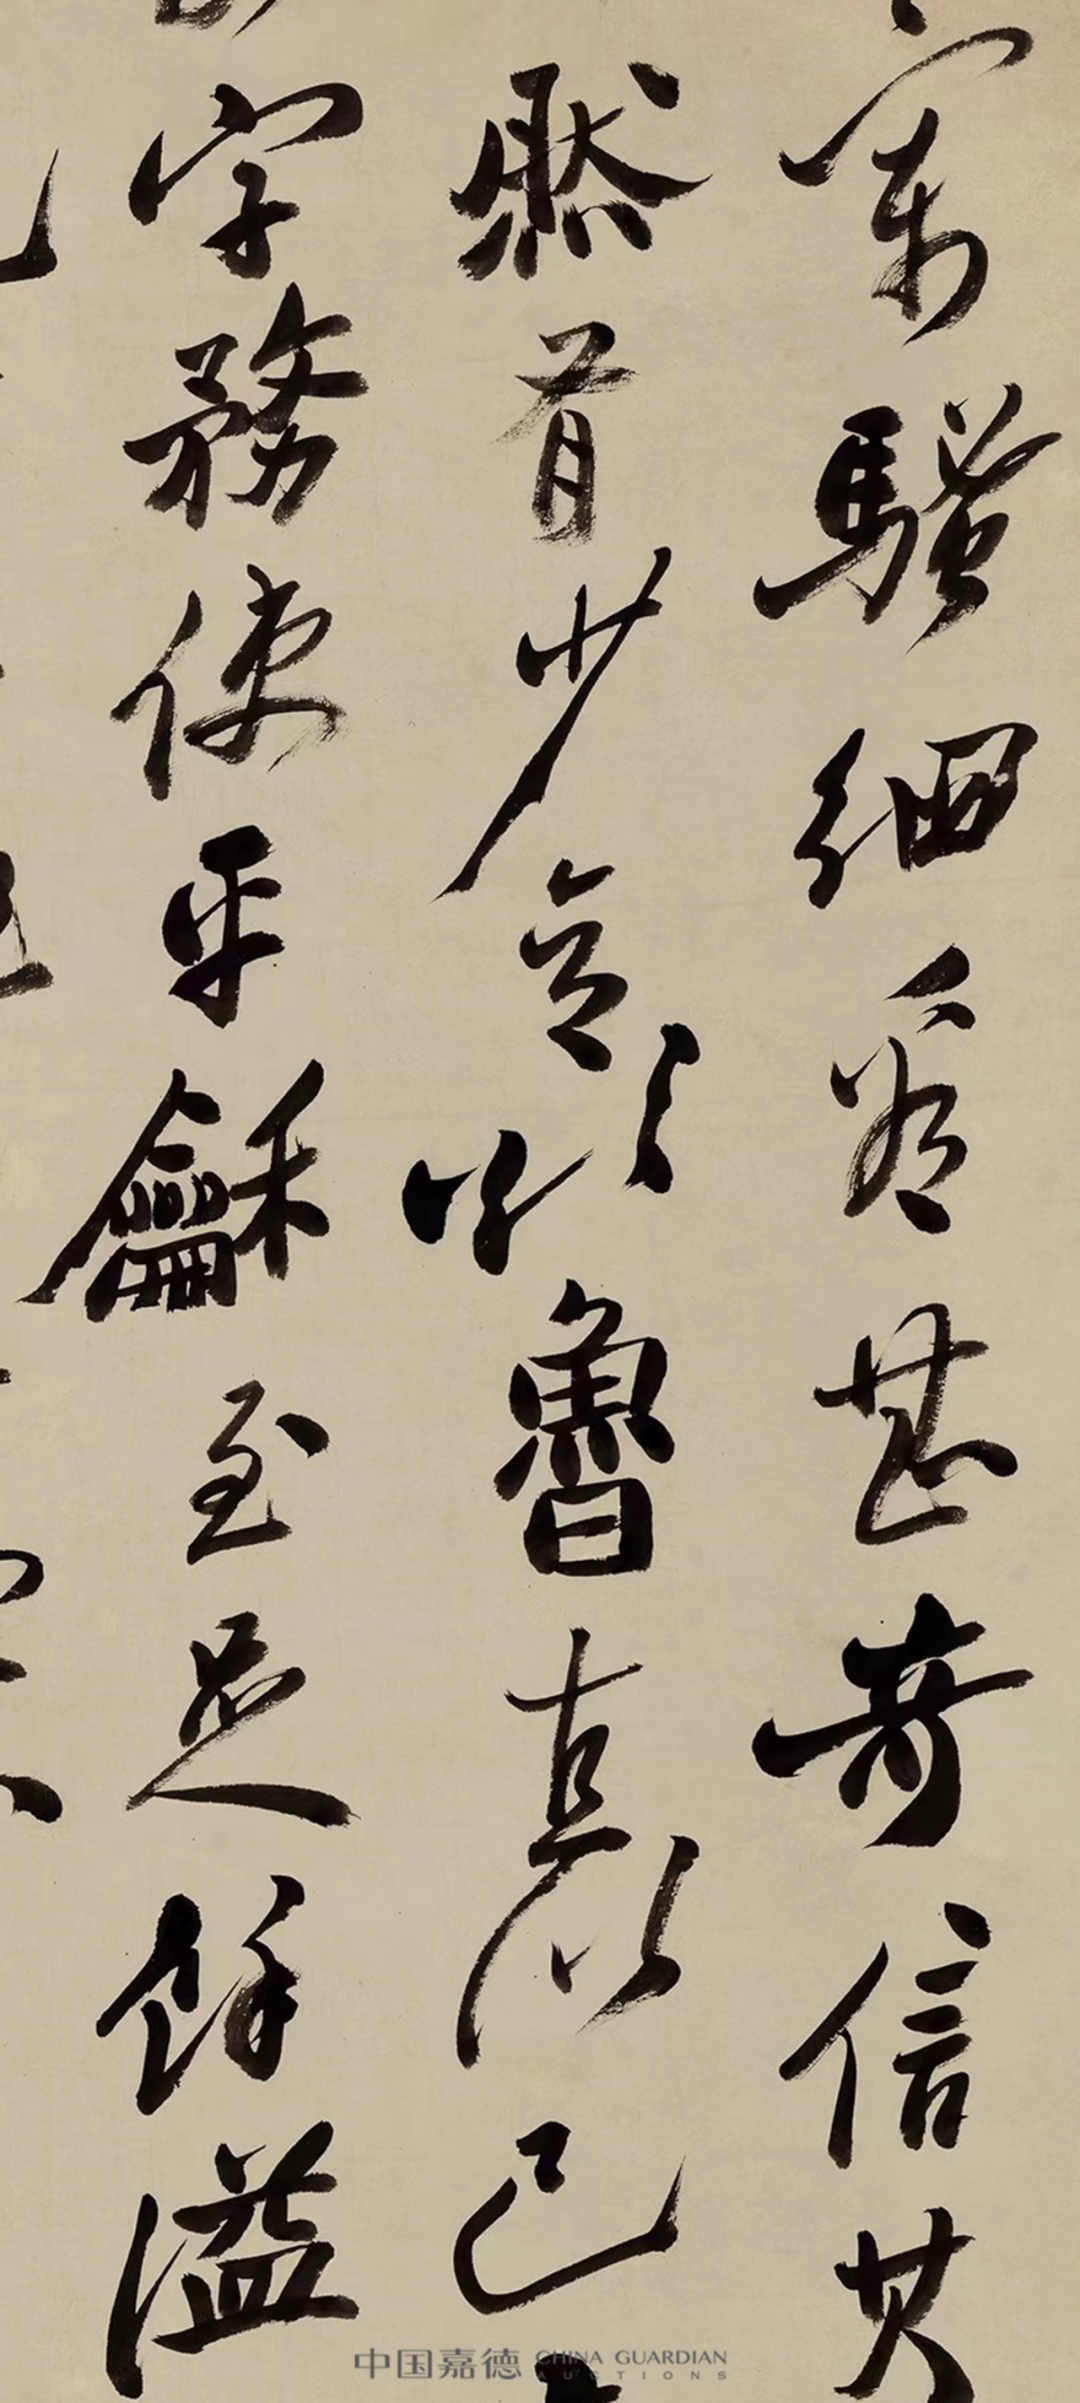 寄騷細看甚奇信其
然有少意魯直以己
字務使平龢至足餘溢
中国嘉德 CHINA GUARDIAN
AUCTIONS